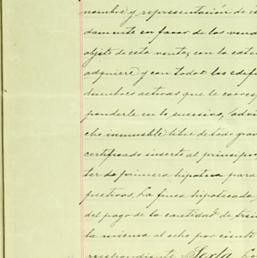 nombre y representación de
damente en favor de los vend
objeto de esta venta, con la exten
adquiere y con todos los edifi
dumbres activas que le corres
ponderle en lo sucesivo, advir
cho inmueble libre de todo grav
certificado inserto al principio
ter de primera hipoteca para
pectivos. La finca hipotecada
del pago de la cantidad de trein
la misma al ocho por ciento
respondiente. Sexta.